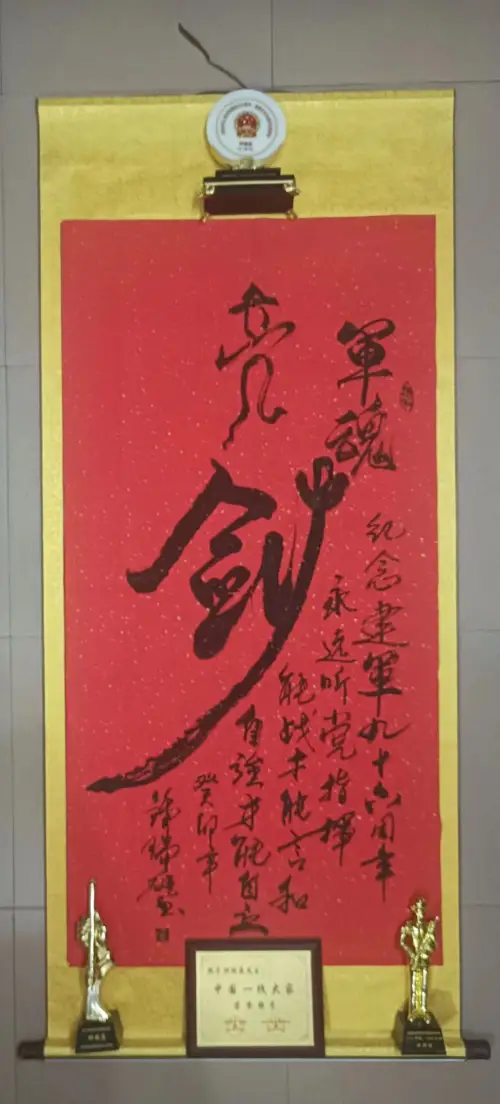 軍魂
亮
劍
纪念建军九十六周年
永远听党指挥
能战才能言和
自强才能自立
癸卯年
中国一线大家